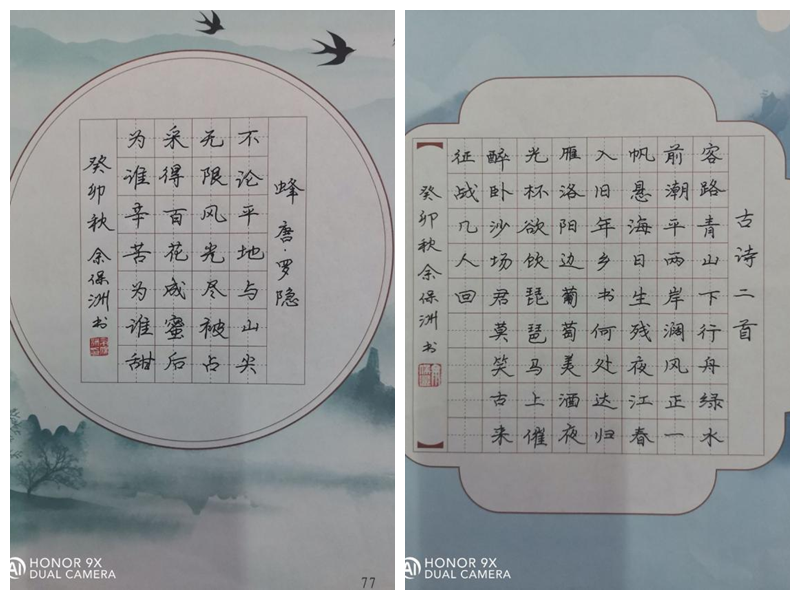 蜂 唐·罗隐
不论平地与山尖
无限风光尽被占
采得百花成蜜后
为谁辛苦为谁甜
癸卯秋余保洲书
77
HONOR 9X
DUAL CAMERA
古诗二首
客路青山下行舟绿水
前潮平两岸澜风正一
帆悬海日生残夜江春
入旧年乡书何处达归
雁洛阳边葡萄美酒夜
光杯欲饮琵琶马上催
醉卧沙场君莫笑古来
征战几人回
癸卯秋余保洲书
HONOR 9X
DUAL CAMERA